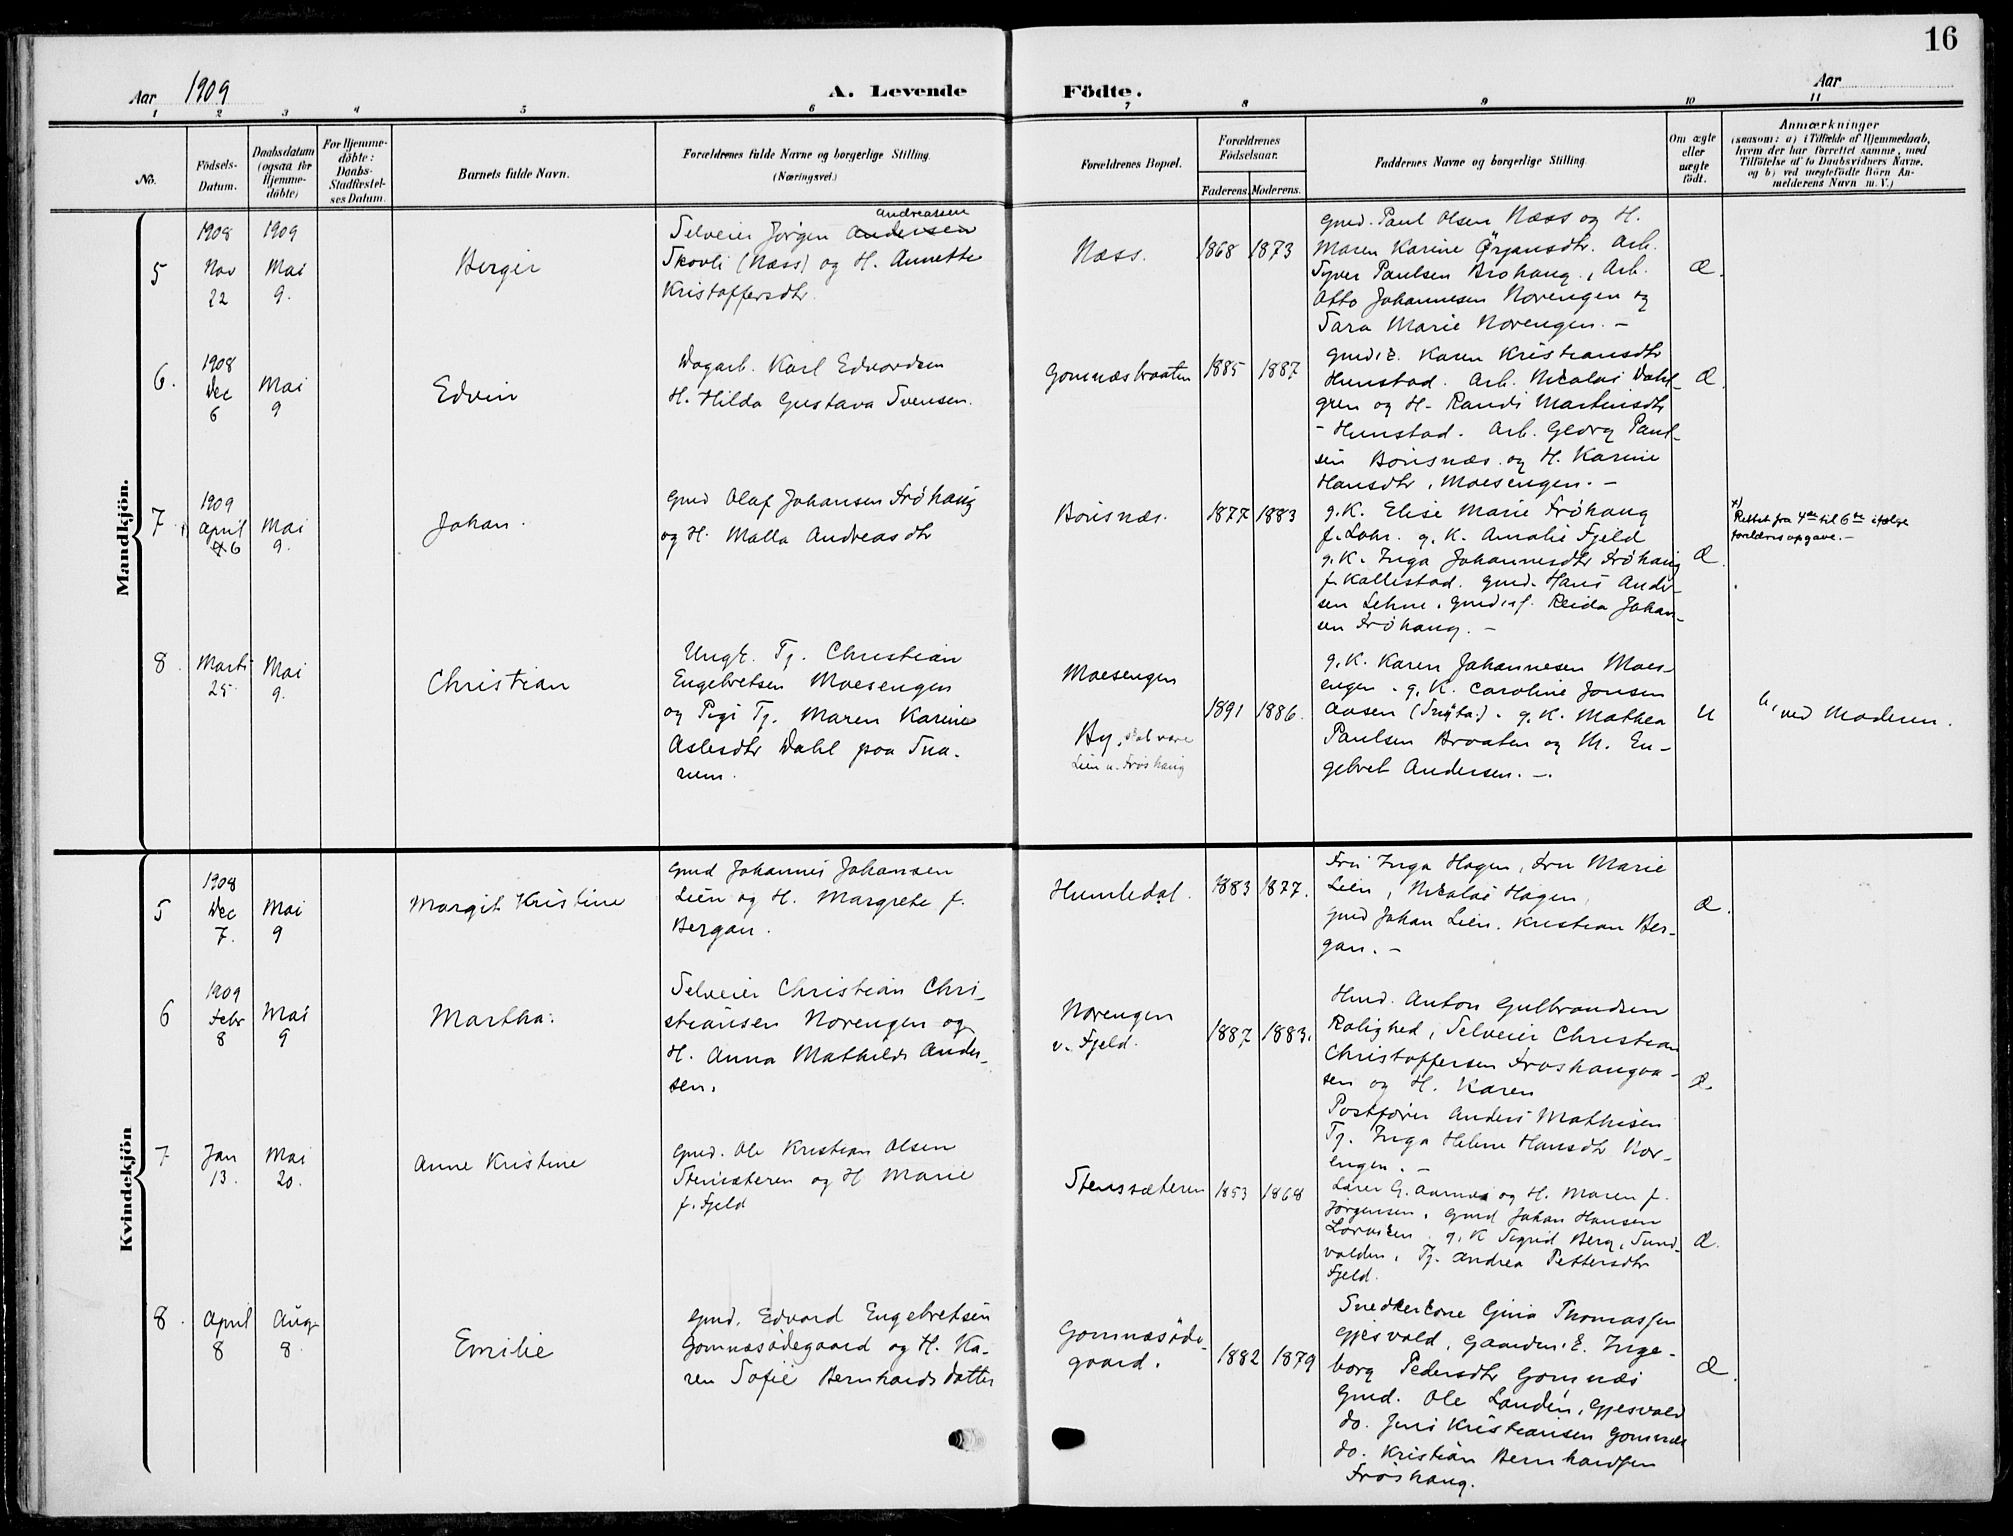 16
Aar 1909
A. Levende Födte.
Aar
1 2 3 4 5 6 7 8 9 10 11
No.
Födsels-
Datum.
Daabsdatum
(ogsaa for
Hjemme-
döbte)
For Hjemme-
döbte:
Daabs-
Stadfæstel-
ses Datum.
Barnets fulde Navn.
Forældrenes fulde Navne og borgerlige Stilling
(Næringsvei.)
Forældrenes Bopæl.
Forældrenes
Födselsaar.
Faderens. Moderens.
Faddernes Navne og borgerlige Stilling.
Om ægte
eller
uægte
födt.
Anmærkninger
(saasom: a) i Tilfælde af Hjemmedaab,
hvem der har forrettet samme, med
Tilföielse af to Daabsvidners Navne.
og b) ved uægtefödte Börn An-
melderens Navn m. V.)
Mandkjön.
5
1908
Nov
22
1909
Mai
9.
Birger
Andreassen
Selveier Jørgen Andersen
Skovli (Næss) og H. Annette
Kristoffersdtr.
Næss.
1868 1873
Gmd. Paul Olsen Næss og H.
Maren Karine Ørjansdtr. Arb.
Syver Paulsen Brohaug, Arb.
Otto Johannesen Norengen og
Sara Marie Norengen. –
Æ.
6.
1908
Dec
6
Mai
9
Edvin
Dagarb. Karl Edvardsen
H. Hilda Gustava Svensen.
Gomnæsbraaten
1885 1887
Karen Kristiansdtr
Hunstad. Arb. Nicolai Dahl-
gren og H. Randi Martinsdtr
- Hunstad. Arb. Georg Paul-
sen Bønsnæs. og H. Karine
Hansdtr, Moesengen. –
Æ.
7
1909
April
6
Mai
9.
Johan.
Gmd Olaf Johansen Frøhaug
og H. Malla Andreasdtr
Bønsnæs.
1877 1883
g. K. Elise Marie Frøhaug
f. Lohr. g. K. Amalie Fjeld
g. K. Inga Johannesdtr Frøhaug
f. Kallestad. Gmd. Hans Ander-
sen Lehne, Reida Johan-
sen Frøhaug. –
Æ.
x)
Rettet fra 4de til 6te ifølge
forældres opgave. –
8.
Marts
25.
Mai
9.
Christian
Ungk. Tj. Christian
Engebretsen Moesengen
og Pige Tj. Maren Karine
Aslesdtr Dahl paa Sna-
rum.
Moesengen
By, skal være
Lien u. Frøshaug
1891 1886.
g. K. Karen Johannesen Moes-
engen. g. K. Caroline Jonsen
Aasen g. K. Mathea
Paulsen Braaten og M. En-
gebret Andersen. –.
U
b, ved Moderen.
Kvindekjön
5
1908
Dec
7.
Mai
9
Margit Kristine
Gmd Johannes Johansen
Lien og H. Margrete f.
Bergan.
Humledal.
1883 1877.
Fru Inga Hagen, Fru Marie
Lien, Nicolai Hagen,
Gmd Johan Lien. Kristian Ber-
gan. –
Æ.
6
1909
Febr
8
Mai
9
Martha.
Selveier Christian Chri-
stiansen Norengen og
H. Anna Mathilde Ander-
sen.
Norengen
v. Fjeld.
1887 1883.
Hmd. Anton Gulbrandsen
Rolighed, Selveier Christian
Christoffersen Frøshaugaa-
sen og H. Karen
Postfører Anders Mathisen
Tj. Inga Helene Hansdtr Nor-
engen. –
Æ.
7
Jan
13.
Mai
20.
Anne Kristine
Gmd. Ole Kristian Olsen
Stensæteren og H Marie
f. Fjeld
Stenssæteren
1853 1868
Lærer G. Aarnes og H. Maren f.
Jørgensen, Gmd Johan Hansen
Lørviken, g. K Sigrid Berg, Sund-
volden, Tj. Andrea Pettersdtr
Fjeld.
Æ.
8.
April
8
Aug.
8.
Emilie
Gmd. Edvard Engebretsen
Gomnæsødegaard og H. Ka-
ren Sofie Bernhardsdatter
Gomnæsøde-
gaard.
1882 1879
Snedkerkone Gina Thomassen
Gjesvold, Inge-
borg Pedersdtr Gomnæs
Gmd. Ole Landen, Gjesvold
do. Jens Kristiansen Gomnæs
do. Kristian Bernhardsen
Frøshaug.
Æ.